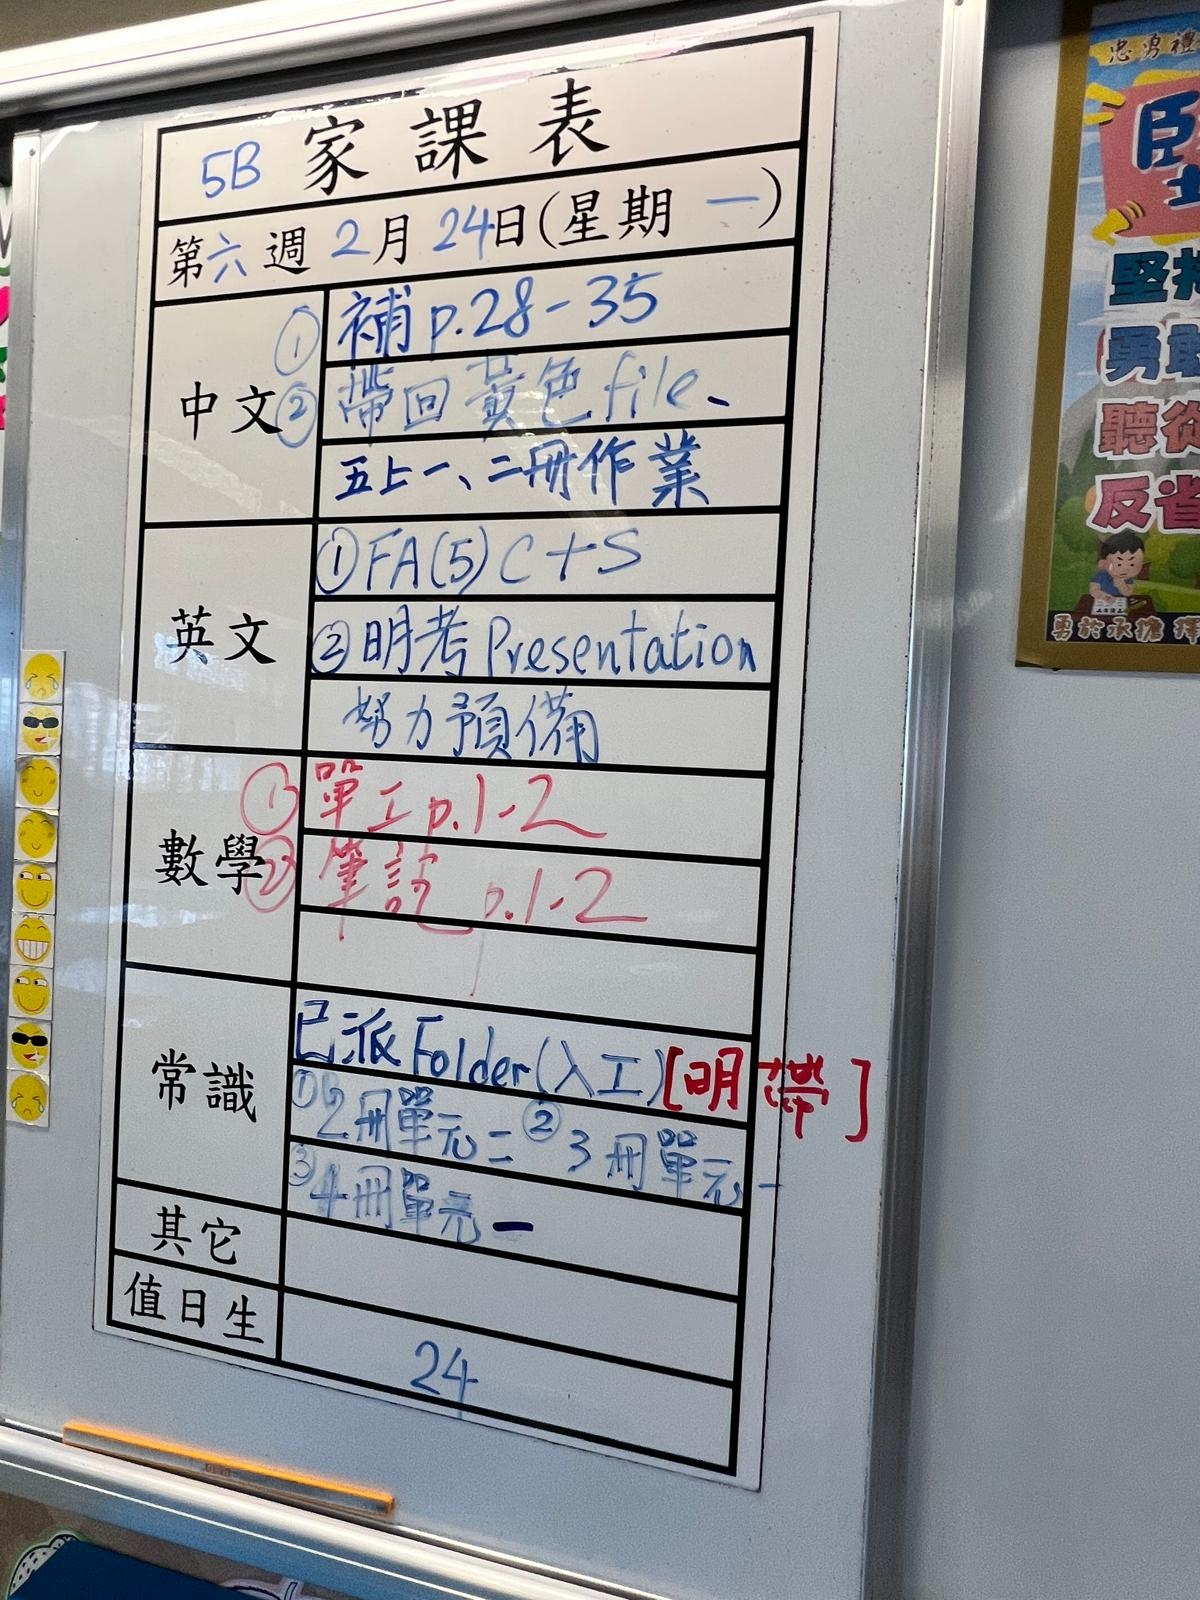 5B 家課表
第六週 2月24日(星期一)
中文
① 補 p.28-35
② 帶回黃色file、
五上一、二冊作業
英文
① FA(5) C+S
② 明考 Presentation
努力預備
數學
① 單工 p.1-2
② 筆記 p.1-2
常識
已派Folder(入工)[明帶]
① 2冊單元二 ② 3冊單元一
③ 4冊單元一
其它
值日生
24
忠勇禮
堅
勇敢
聽從
反省
勇於承擔